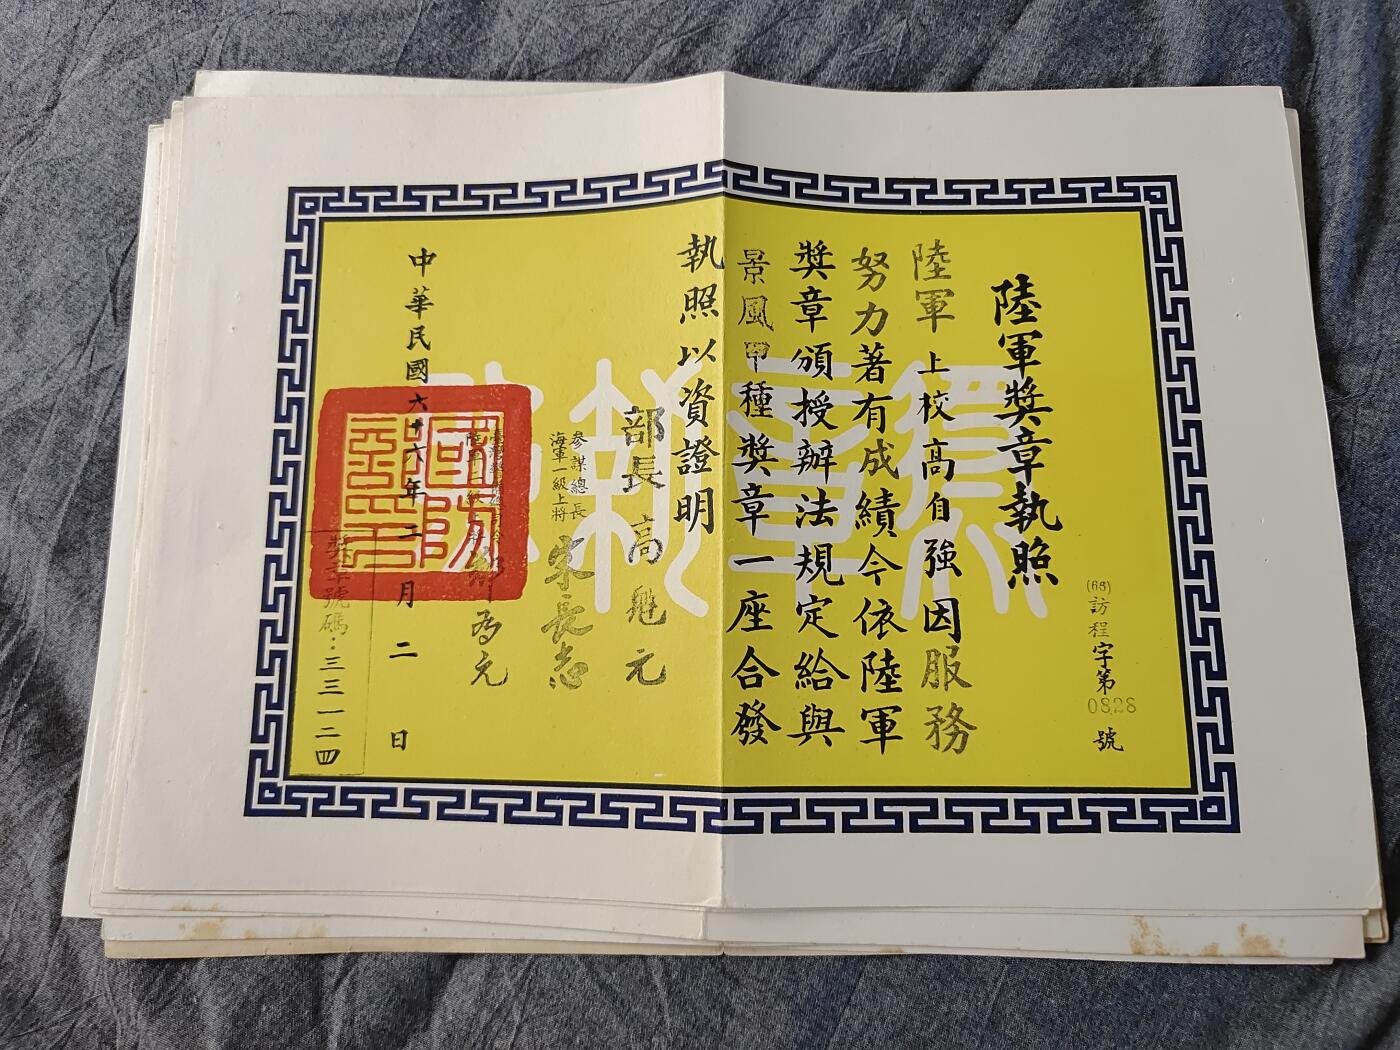 (66)訪程字第0828號
陸軍獎章執照
陸軍上校高自強因服務
努力著有成績今依陸軍
獎章頒授辦法規定給與
景風甲種獎章一座合發
執照以資證明
部長 高魁元
參謀總長
海軍一級上將
宋長志
為元
中華民國六十六年二月二日
國防
部印
獎章號碼：三三一二四
獎章執照